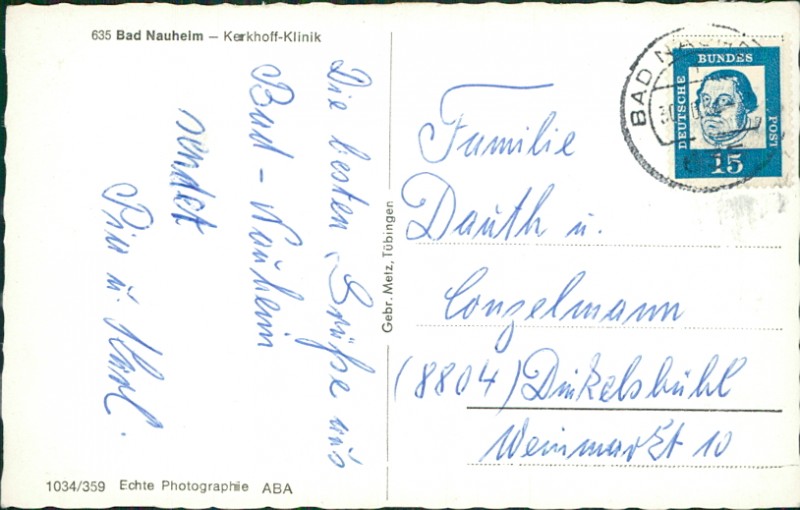 635 Bad Nauheim – Kerkhoff-Klinik
Die besten Grüße aus
Bad-Nauheim
sendet
Pia u. Karl.
Gebr. Metz, Tübingen
BAD NAUHEIM
DEUTSCHE
BUNDES
POST
15
Familie
Dauth u.
Conzelmann
(8804) Dinkelsbühl
Weinmarkt 10
1034/359 Echte Photographie ABA